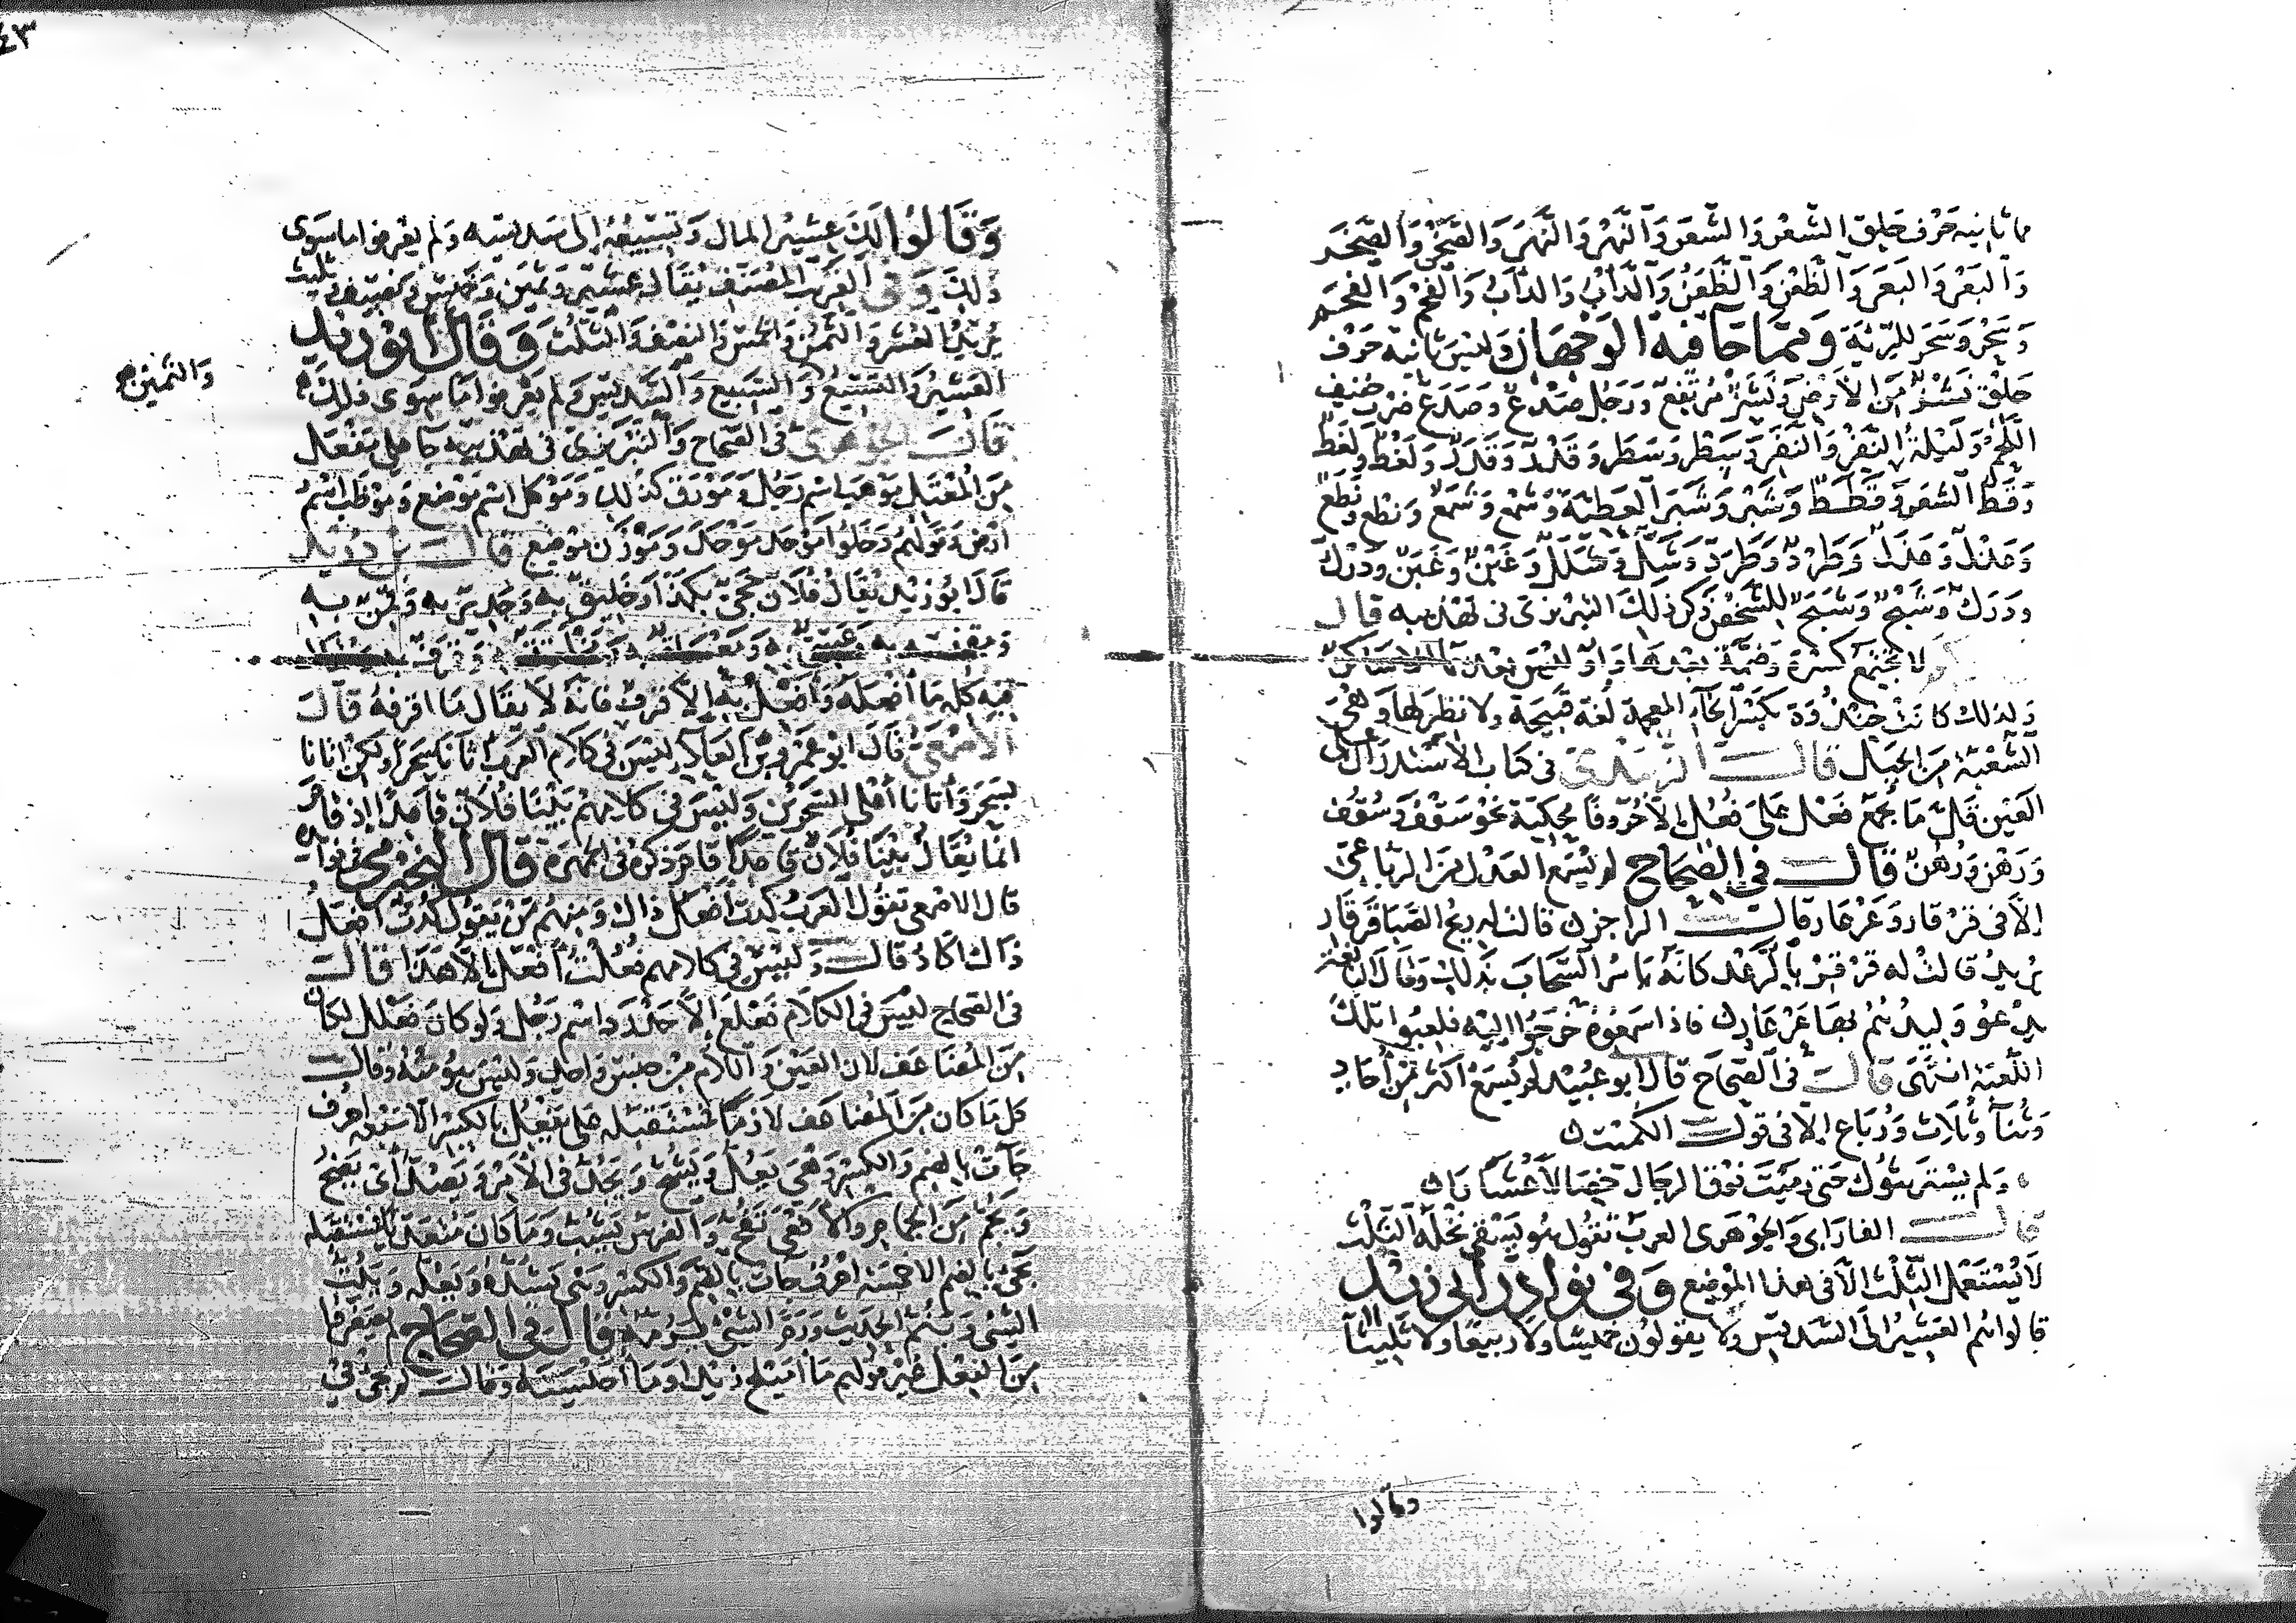 مما ثانيه حرف حلق الشَّعْر وَالشَّعَر وَالنَّهْر وَالنَّهَر وَالصَّخْر وَالصَّخَر
وَالبَعْر وَالبَعَر وَالظَّعْن وَالظَّعَن وَالدَّأْب وَالدَّأَب وَالفَحْم وَالفَحَم
وَسَحْر وَسَحَر للرِّئة وَممَّا جَآ فيه الوَجْهَان وَلَيْسَ ثانيه حَرْف
حَلْق نَشْزٌ مِنَ الأَرْضِ وَنَشَزٌ مُرتَفِع وَرَجُل صَدْعٌ وَصَدَع ضَرْب خَفيف
اللَّحْم وَلَيْلَة النَّفْر وَالنَّفَر وَسَطْر وَسَطَر وَقَدْر وَقَدَر وَلَغْط وَلَغَط
وَقَطّ الشَّعَر وَقَطَط وَشَبْر وَشَبَر العَطيَّة وَشَمْع وَشَمَع وَنَطْع وَنَطَع
وَعَذْل وَعَذَل وَطَرْد وَطَرَد وَشَلّ وَشَلَل وَغَبْن وَغَبَن وَدَرْك
وَدَرَك وَشَبْح وَشَبَح للشَّخْص ذَكَر ذلكَ التبريزي في تهذيبه قال
لا يجتمع كسرة وَضمَّة بعدها وَاو لَيْسَ بعدها الا ساكن
وَلذلك كانت خِنْذُوَة بكسر الخَآء المعجمة لغة قبيحة ولا نظير لها وَهي
الشُّعْبَة مِنَ الجَبَل قال الزبيدي في كتاب الاستدراك على
العَين قلَّ مَا يجمع فَعْل عَلى فُعُل إلاَّ حُرُوفًا محكيَّة نحو سَقْف وَسُقُف
وَرَهْن وَرُهُن قال في الصّحَاح لم يُسْمَع العَدْل مِنَ الرباعي
إلاَّ في قَرْقار وَعَرْعَار قال الراجز قالت له ريح الصَّبَا قَرْقَارِ
يُريد قالتْ له قَرْقِرْ بالرَّعْد كانَّهُ يامر السَّحَابَ بذلك وَقال الآخر
يدعو وَليدُهُمُ بها عَرْعَارِ فاذا سَمعُوهُ خَرَجُوا اليه فلعبُوا تلك
اللعبة انتهى قال في الصّحَاح قال ابو عُبَيْد لم يُسْمَع اكثر مِنْ أُحَاد
وَثُنآ وَثُلاث وَرُبَاع إلا في قول الكُمَيْت
وَلم يَسْتَريثُوكَ حَتى رَمَيْتَ فَوْقَ الرجَال خِصَالاً عُشَارَا
قال الفارَابي وَالجَوْهَري العربُ تقُول هُو يَسْقي نَخْلَهُ الثِّلْث
لاَ يُسْتَعْمل الثِّلْث إلاَّ في هذا المَوْضِع وَفي نوَادِر أبي زيد
قالوا هُم العَشير إلَى السَّديس وَلا يقولون خميسًا وَلا ربيعًا وَلا ثَليثًا
وقالوا
٤٣
وَقَالُوا لكَ عشيرُ المال وَتسيعُهُ إلى سَديسه وَلم يعرفوا ما سوَى
ذلكَ وَفي الغَريب المصَنَّف يُقَال عَشير وَثمين وَخميس وَنصيف وَثليث
يُريد العُشر وَالثُّمن وَالخُمس وَالنصف وَالثُّلث وَقال أبو زيد
العَشير وَالتَّسيع وَالسَّبيع وَالسَّديس وَلم يَعْرفوا مَا سِوَى ذلك
وَالثمين صح
قَال الجَوْهَري في الصّحَاح وَالتبريزي في تهذيبه جَآ عَلى مَفْعَل
مِنَ المُعْتَل مَوْهَب اسْم رَجُل وَمَوْرَق كذلك وَمَوْكَل اسْم مَوْضع وَمَوْظَب اسْم
أرْض وَقولهُم دَخَلُوا مَوْحَدَ مَوْحَدَ وَمَوْزَن مَوْضع قال ابن دُريد
قَال أبو زيد يُقَال فُلاَن حَجيّ بكذَا وَخَليق به وَجَدير به وَقَمِن به
فيه كلّه مَا أفْعَلَهُ وَأفْعِل به إلاَّ قَرَف فَانَّهُ لا يُقَال مَا اقرفهُ قال
الأصْمَعي قال ابو عمرو بن العلاء لَيْسَ في كلاَم العَرَب أتانا سَحَرًا ولكن اتانا
بسَحَر وَأتانا أعْلى السَّحَرَين وَلَيْسَ في كلامِهِمْ بَيْنَا فُلاَن قاعدًا إذ قام
انَّما يُقَال بَيْنَا فُلاَن قاعدًا قَام ذكرَهُ في الجمْهَرَة قال النَّجيرمي في فوائده
قال الاصمعي تقُول العَرَب كدْتُ أفعَلُ ذاك وَمِنهم مَنْ يَقُول كُدْتُ أفعَلُ
ذاك أكادُ قال وَلَيْسَ في كلامهم فَعُلْتُ أفْعَلُ إلاَّ هَذا قال
في الصّحَاح لَيْسَ في الكَلاَم فَعْلَع إلاَّ حَدْرَد اسْم رَجُل وَلو كان فَعْلل لكان
مِنَ المُضَاعَف لأن العَيْنَ وَالَّلام مِنْ جنس وَاحد وَليس هُوَ مِنْهُ وَقال
كل مَا كان مِنَ المُضَاعَف لازمًا فمُسْتقبَله عَلى يَفْعِل بالكَسْر إلا سَبعه احرف
جآت بالضم وَالكسْر وَهي يَعُلّ وَيَشُحّ وَيَجُدّ في الأَمْر وَيَصُدّ أي يَضِجُّ
وَيَجُمّ مِنَ الجمَام وَالأفْعَى تَفُحّ وَالفرس يَشُبّ وَمَا كان مُتَعَدّيا فمُسْتقبَله
يجي بالضم الا خمسَة احرُف جآت بالضَّم وَالكَسْر وَهي يَشُدّهُ وَيَعُلّه وَيَبُتّ
الشي وَيَنُمّ الحَديث وَرَمَّ الشَّيْء يَرُمّهُ قال في الصّحَاح لم يصغروا
مِنَ الفِعْل غَيْر قولهم مَا أُمَيْلحَ زيدًا وَمَا أُحَيْسِنَه وَقال لم يَجيْ في